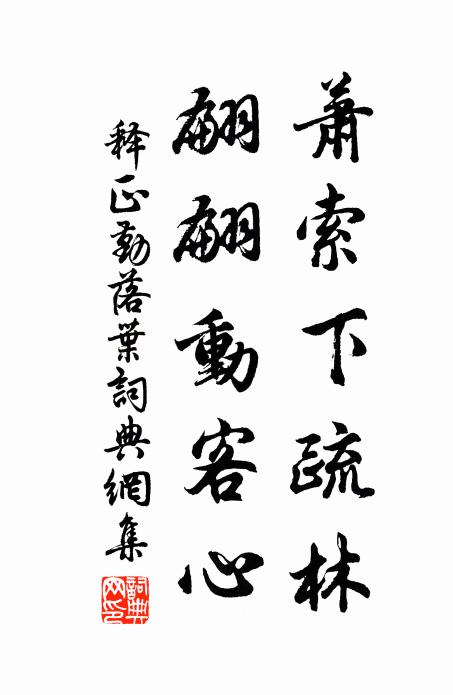 蕭索下疏林
翩翩動客心
释正勤落葉詞典網集
詞典网印